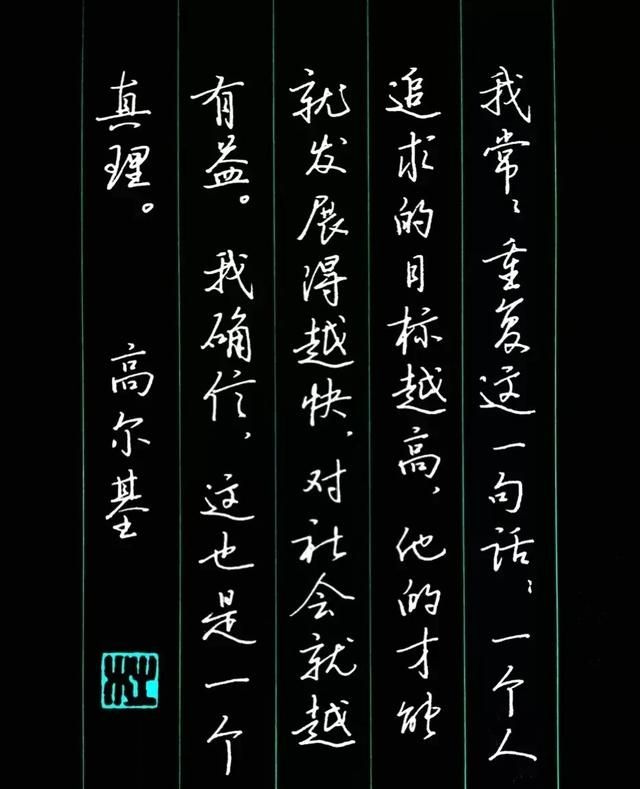 我常々重复这一句话：一个人
追求的目标越高，他的才能
就发展得越快，对社会就越
有益。我确信，这也是一个
真理。
高尔基
杜